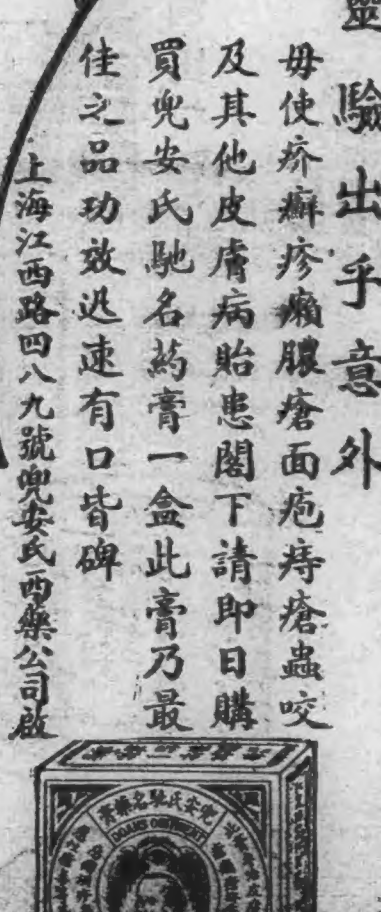 靈驗出乎意外
毋使疥癬疹癩膿瘡面疱痔瘡蟲咬
及其他皮膚病貽患閣下請即日購
買兜安氏馳名葯膏一盒此膏乃最
佳之品功效迅速有口皆碑
上海江西路四八九號兜安氏西藥公司啟
兜安氏馳名藥膏
DOAN'S OINTMENT